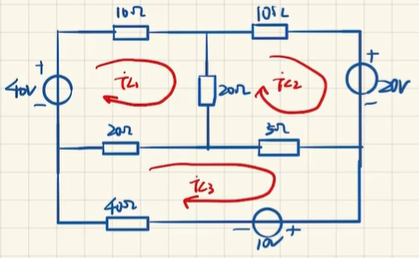 10Ω 10Ω
+ +
40V iL1 20Ω iL2 20V
- -
20Ω 5Ω
iL3
40Ω - +
10V